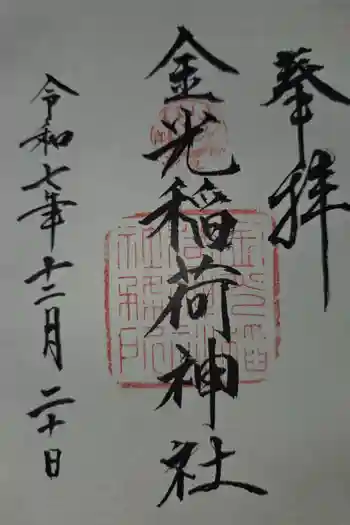 奉拝
金光稲荷神社
令和七年十二月二十日